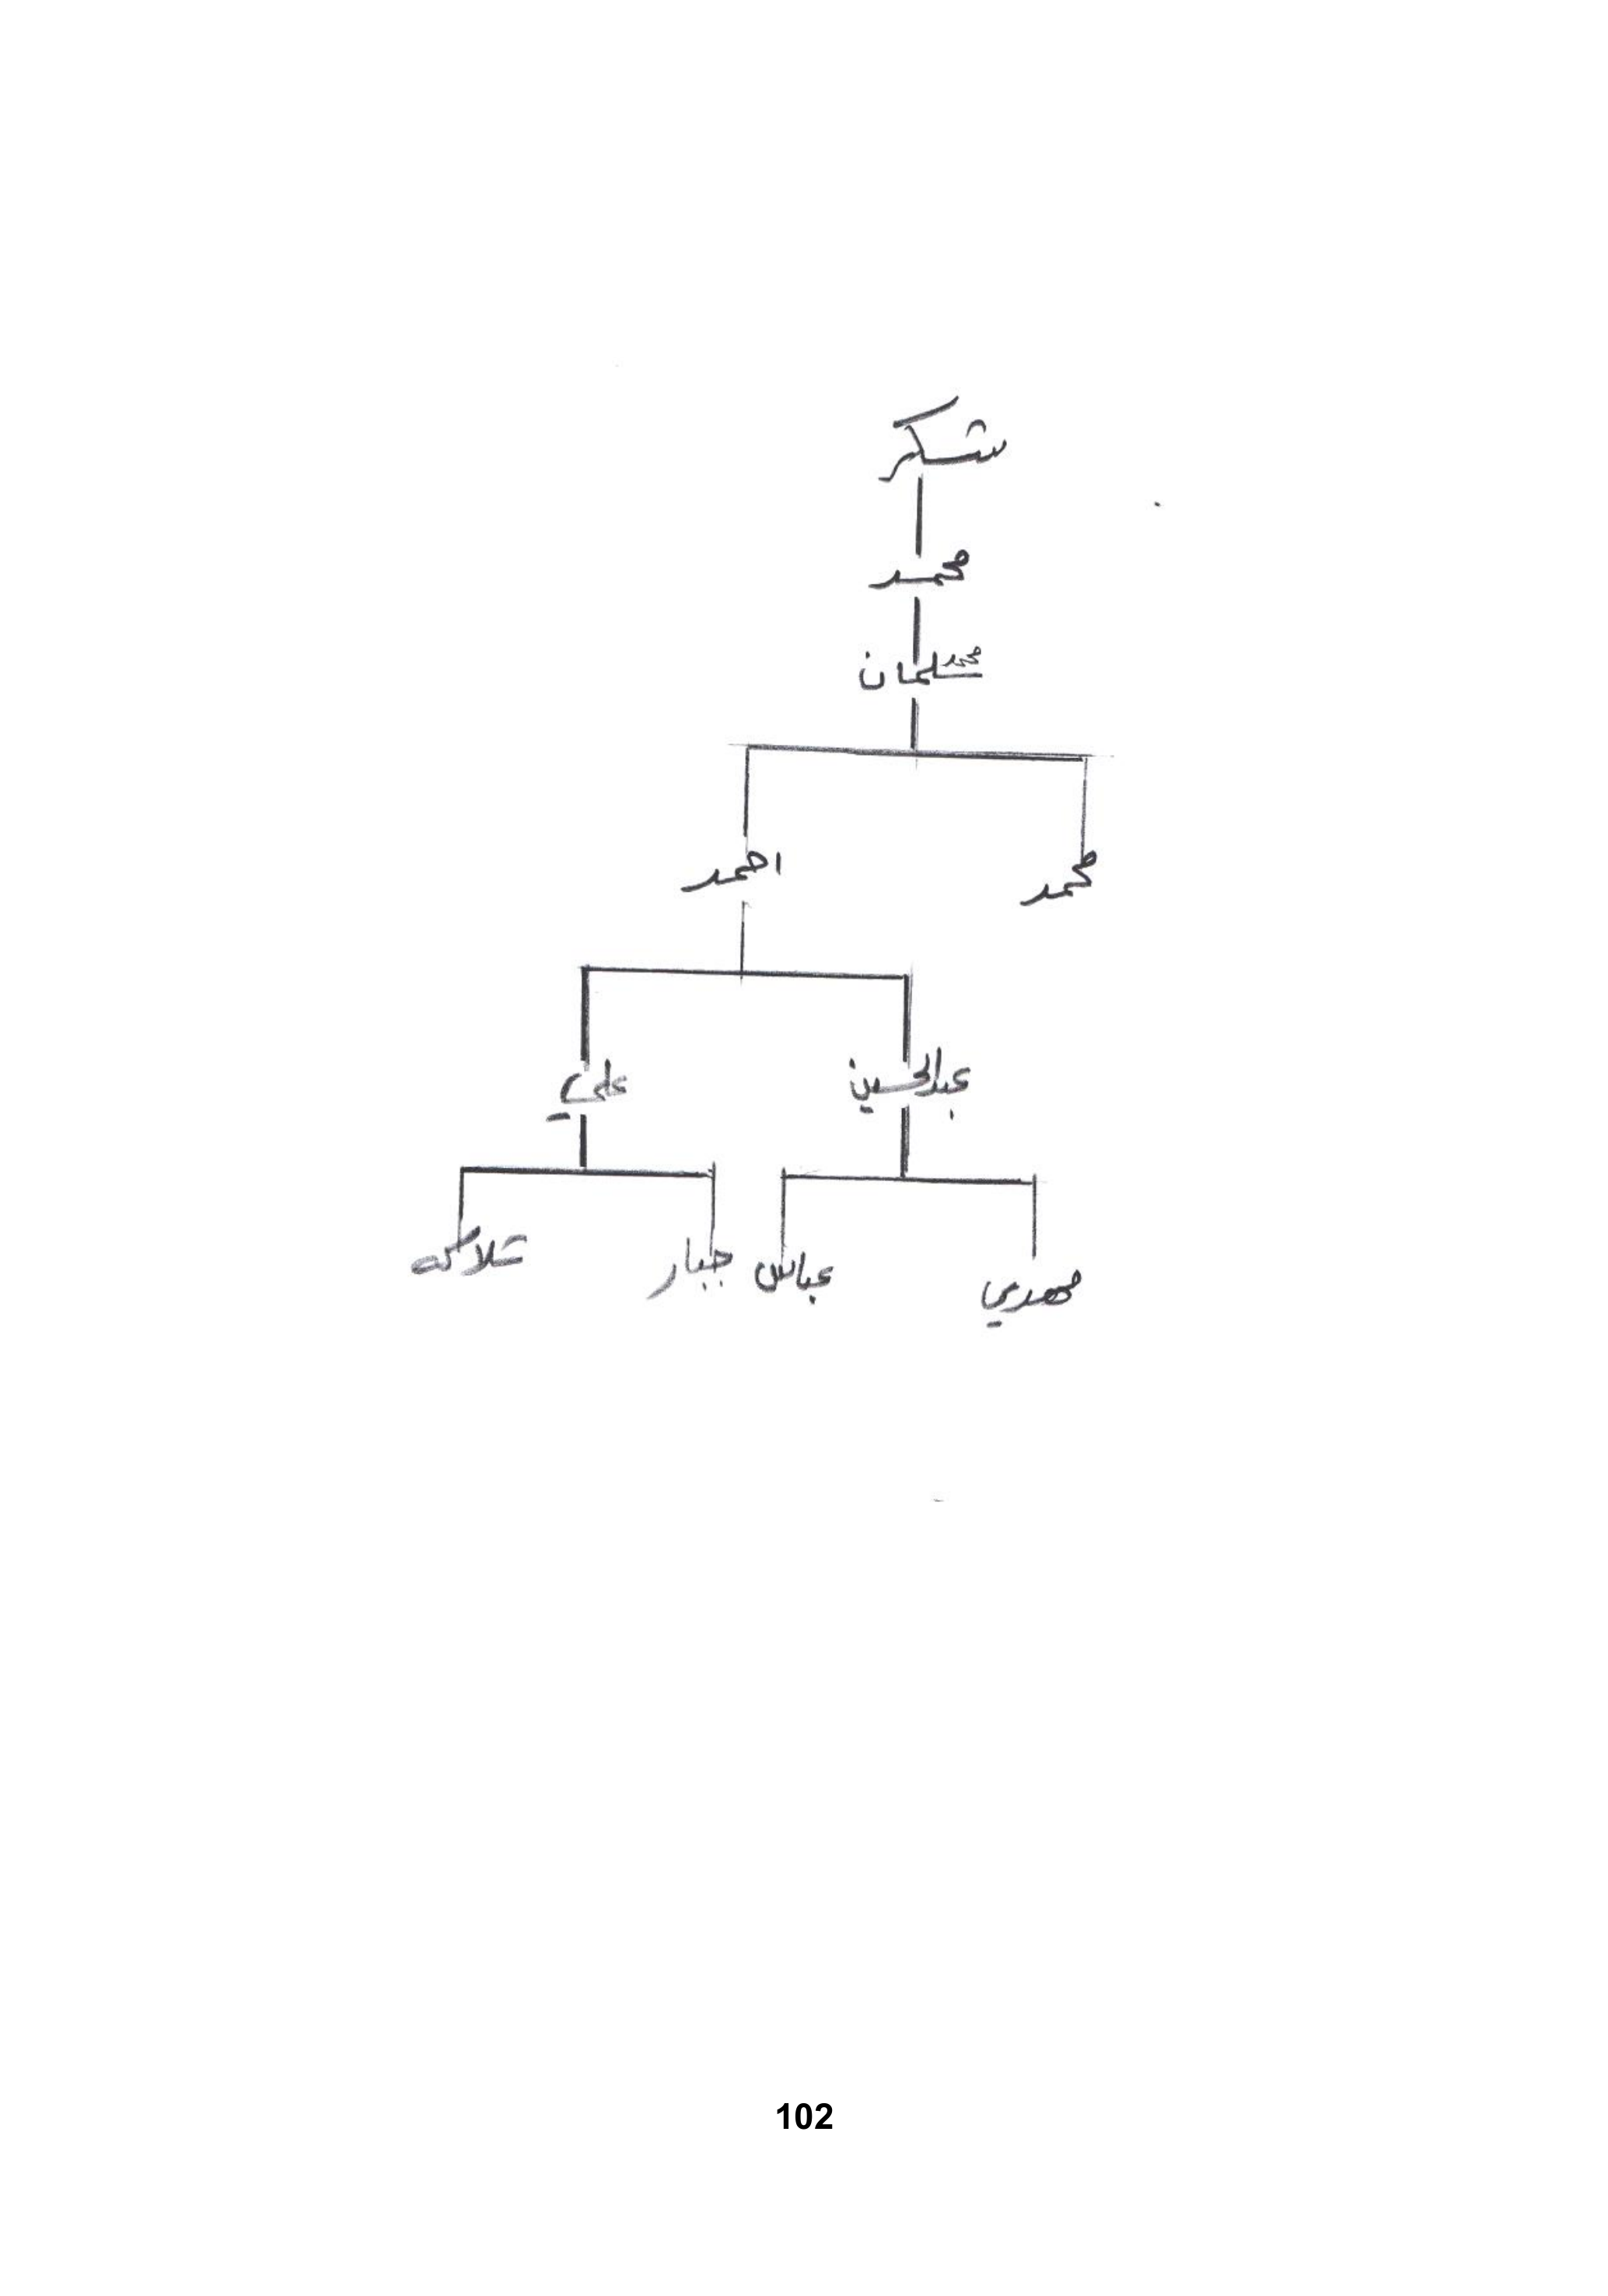 شكر
محمد
محمد سلمان
محمد احمد
عبدالحسين علي
مهدي عباس جبار شلاكه
102